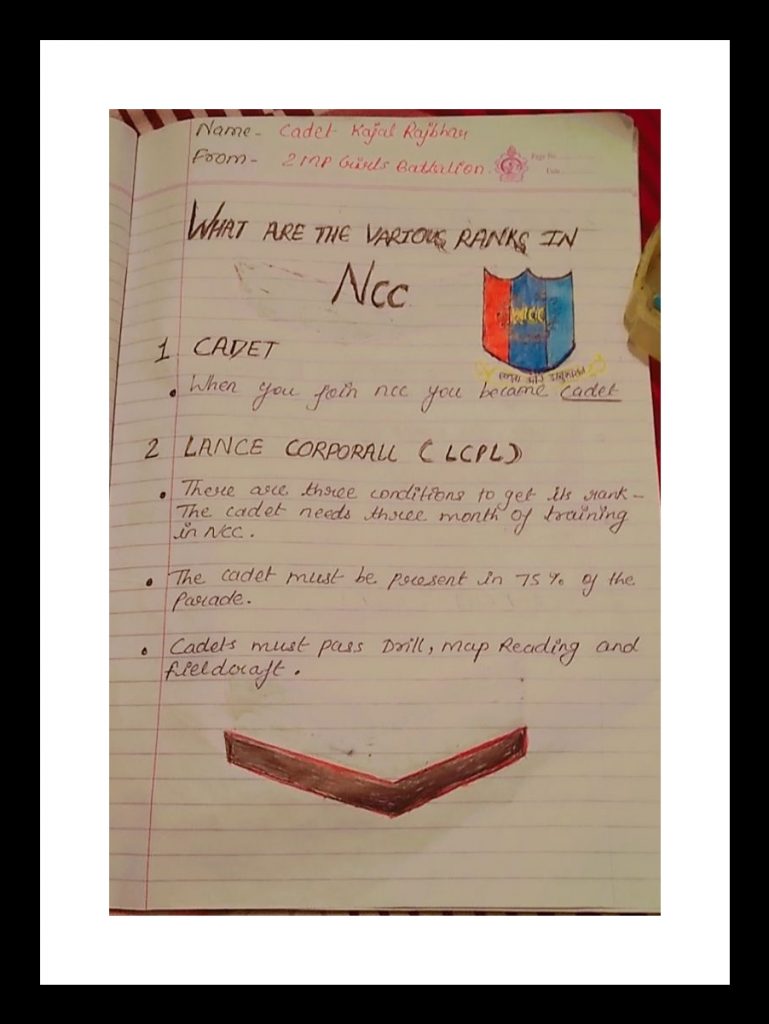 Name - Cadet Kajal Rajbhar
From - 2 MP Girls Battalion.
Page No.
Date
WHAT ARE THE VARIOUS RANKS IN
NCC
NCC
एकता और अनुशासन
1 CADET
• When you join ncc you became Cadet
2 LANCE CORPORALL (LCPL)
• There are three conditions to get its rank -
The cadet needs three month of training
in NCC.
• The cadet must be present in 75% of the
Parade.
• Cadets must pass Drill, map Reading and
fieldcraft.